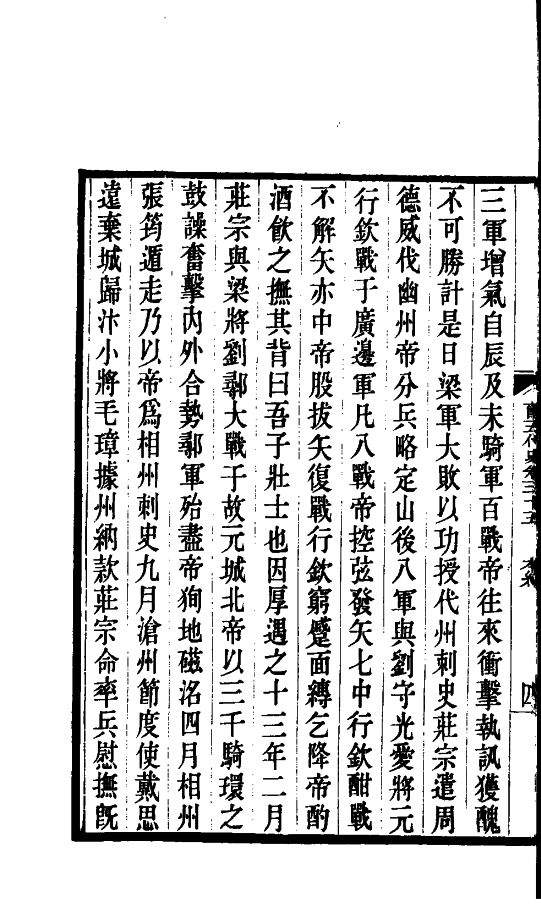 三軍增氣自辰及未騎軍百戰帝往來衝擊執訊獲醜
不可勝計是日梁軍大敗以功授代州刺史莊宗遣周
德威伐幽州帝分兵略定山後八軍與劉守光愛將元
行欽戰于廣邊軍凡八戰帝控弦發矢七中行欽酣戰
不解矢亦中帝股拔矢復戰行欽窮蹙面縛乞降帝酌
酒飲之撫其背曰吾子壯士也因厚遇之十三年二月
莊宗與梁將劉鄩大戰于故元城北帝以三千騎環之
鼓譟奮擊內外合勢鄩軍殆盡帝狥地磁洺四月相州
張筠遁走乃以帝爲相州刺史九月滄州節度使戴思
遠棄城歸汴小將毛璋據州納款莊宗命率兵慰撫旣
舊五代史卷三十五 本紀 四